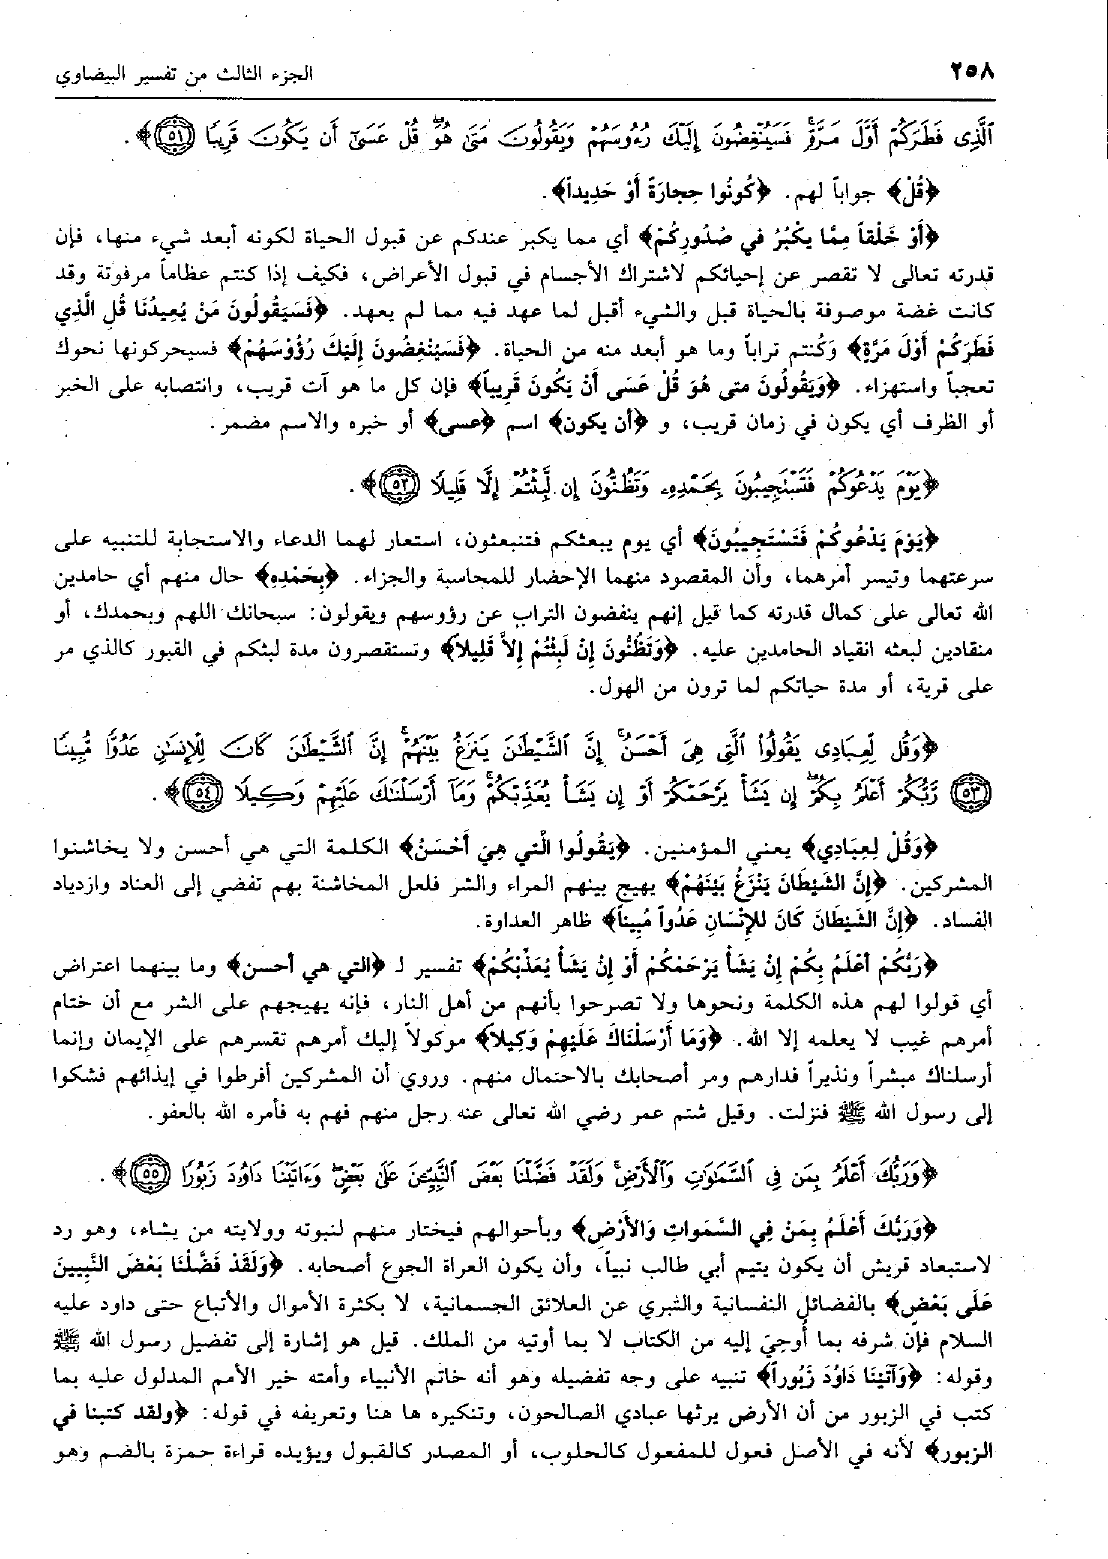 ٢٥٨ الجزء الثالث من تفسير البيضاوي
ٱلَّذِى فَطَرَكُمْ أَوَّلَ مَرَّةٍ فَسَيُنْغِضُونَ إِلَيْكَ رُءُوسَهُمْ وَيَقُولُونَ مَتَىٰ هُوَ قُلْ عَسَىٰٓ أَن يَكُونَ قَرِيبًا ﴿٥١﴾﴾.
﴿قُلْ﴾ جواباً لهم. ﴿كُونُوا حِجارَةً أَوْ حَدِيداً﴾.
﴿أَوْ خَلْقاً مِمَّا يَكْبُرُ في صُدُورِكُمْ﴾ أي مما يكبر عندكم عن قبول الحياة لكونه أبعد شيء منها، فإن
قدرته تعالى لا تقصر عن إحيائكم لاشتراك الأجسام في قبول الأعراض، فكيف إذا كنتم عظاماً مرفوتة وقد
كانت غضة موصوفة بالحياة قبل والشيء أقبل لما عهد فيه مما لم يعهد. ﴿فَسَيَقُولُونَ مَنْ يُعِيدُنَا قُلِ الَّذِي
فَطَرَكُمْ أَوَلَ مَرَّةٍ﴾ وَكُنتم تراباً وما هو أبعد منه من الحياة. ﴿فَسَيُنْغِضُونَ إِلَيْكَ رُؤُوْسَهُمْ﴾ فسيحركونها نحوك
تعجباً واستهزاء. ﴿وَيَقُولُونَ متى هُوَ قُلْ عَسَى أَنْ يَكُونَ قَرِيباً﴾ فإن كل ما هو آت قريب، وانتصابه على الخبر
أو الظرف أي يكون في زمان قريب، و ﴿أن يكون﴾ اسم ﴿عسى﴾ أو خبره والاسم مضمر.
﴿يَوْمَ يَدْعُوكُمْ فَتَسْتَجِيبُونَ بِحَمْدِهِۦ وَتَظُنُّونَ إِن لَّبِثْتُمْ إِلَّا قَلِيلًا ﴿٥٢﴾﴾.
﴿يَوْمَ يَدْعُوكُمْ فَتَسْتَجِيبُونَ﴾ أي يوم يبعثكم فتنبعثون، استعار لهما الدعاء والاستجابة للتنبيه على
سرعتهما وتيسر أمرهما، وأن المقصود منهما الإحضار للمحاسبة والجزاء. ﴿بِحَمْدِهِ﴾ حال منهم أي حامدين
الله تعالى على كمال قدرته كما قيل إنهم ينفضون التراب عن رؤوسهم ويقولون: سبحانك اللهم وبحمدك، أو
منقادين لبعثه انقياد الحامدين عليه. ﴿وَتَظُنُّونَ إِنْ لَبِثْتُمْ إِلاَّ قَلِيلاً﴾ وتستقصرون مدة لبثكم في القبور كالذي مر
على قرية، أو مدة حياتكم لما ترون من الهول.
﴿وَقُل لِّعِبَادِى يَقُولُوا۟ ٱلَّتِى هِىَ أَحْسَنُ إِنَّ ٱلشَّيْطَٰنَ يَنزَغُ بَيْنَهُمْ إِنَّ ٱلشَّيْطَٰنَ كَانَ لِلْإِنسَٰنِ عَدُوًّا مُّبِينًا
﴿٥٣﴾ رَّبُّكُمْ أَعْلَمُ بِكُمْ إِن يَشَأْ يَرْحَمْكُمْ أَوْ إِن يَشَأْ يُعَذِّبْكُمْ وَمَآ أَرْسَلْنَٰكَ عَلَيْهِمْ وَكِيلًا ﴿٥٤﴾﴾.
﴿وَقُلْ لِعِبَادِي﴾ يعني المؤمنين. ﴿يَقُولُوا الَّتي هِيَ أَحْسَنُ﴾ الكلمة التي هي أحسن ولا يخاشنوا
المشركين. ﴿إِنَّ الشَيْطَانَ يَنْزَغُ بَيْنَهُمْ﴾ يهيج بينهم المراء والشر فلعل المخاشنة بهم تفضي إلى العناد وازدياد
الفساد. ﴿إِنَّ الشَيْطَانَ كَانَ للإنْسَانِ عَدُواً مُبِيناً﴾ ظاهر العداوة.
﴿رَبُّكُمْ أعْلَمُ بِكُمْ إِنْ يَشَأْ يَرْحَمْكُمْ أَوْ إِنْ يَشَأْ يُعَذِّبْكُمْ﴾ تفسير لـ ﴿التي هي أحسن﴾ وما بينهما اعتراض
أي قولوا لهم هذه الكلمة ونحوها ولا تصرحوا بأنهم من أهل النار، فإنه يهيجهم على الشر مع أن ختام
أمرهم غيب لا يعلمه إلا الله. ﴿وَمَا أَرْسَلْنَاكَ عَلَيْهِمْ وَكيلاً﴾ موكولاً إليك أمرهم تقسرهم على الإيمان وإنما
أرسلناك مبشراً ونذيراً فدارهم ومر أصحابك بالاحتمال منهم. وروي أن المشركين أفرطوا في إيذائهم فشكوا
إلى رسول الله ﷺ فنزلت. وقيل شتم عمر رضي الله تعالى عنه رجل منهم فهم به فأمره الله بالعفو.
﴿وَرَبُّكَ أَعْلَمُ بِمَن فِى ٱلسَّمَٰوَٰتِ وَٱلْأَرْضِ وَلَقَدْ فَضَّلْنَا بَعْضَ ٱلنَّبِيِّـۧنَ عَلَىٰ بَعْضٍ وَءَاتَيْنَا دَاوُۥدَ زَبُورًا ﴿٥٥﴾﴾.
﴿وَرَبُّكَ أَعْلَمُ بِمَنْ فِي السَّمَواتِ وَالأَرْضِ﴾ وبأحوالهم فيختار منهم لنبوته وولايته من يشاء، وهو رد
لاستبعاد قريش أن يكون يتيم أبي طالب نبياً، وأن يكون العراة الجوع أصحابه. ﴿وَلَقَدْ فَضَّلْنَا بَعْضَ النَّبِيينَ
عَلَى بَعْضٍ﴾ بالفضائل النفسانية والتبري عن العلائق الجسمانية، لا بكثرة الأموال والأتباع حتى داود عليه
السلام فإن شرفه بما أُوحِيَ إليه من الكتاب لا بما أوتيه من الملك. قيل هو إشارة إلى تفضيل رسول الله ﷺ
وقوله: ﴿وَآتَيْنَا دَاوُدَ زَبُوراً﴾ تنبيه على وجه تفضيله وهو أنه خاتم الأنبياء وأمته خير الأمم المدلول عليه بما
كتب في الزبور من أن الأرض يرثها عبادي الصالحون، وتنكيره ها هنا وتعريفه في قوله: ﴿ولقد كتبنا في
الزبور﴾ لأنه في الأصل فعول للمفعول كالحلوب، أو المصدر كالقبول ويؤيده قراءة حمزة بالضم وهو